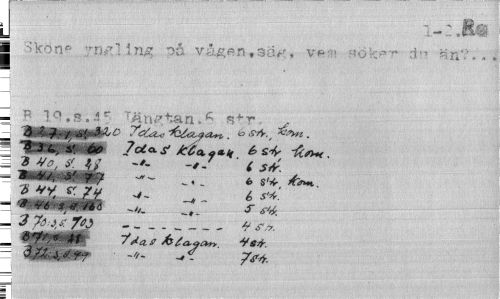 1-2.Ra
Sköne yngling på vägen,säg, vem söker du än?...
B 19.s.45 Längtan.6 str.
B 27:1, s. 320 Idas klagan. 6 str, kom.
B 36, s. 60 Idas klagan. 6 str, kom.
B 40, s. 28 -"- -"- 6 str.
B 41, s. 77 -"- -"- 6 str, kom.
B 44, s. 74 -"- -"- 6 str.
s. 160 -"- -"- 5 str.
B 70:3, s. 703 - - - - - - - - 4 str.
B 71, s. Idas klagan. 4 str.
B 72:3, s. -"- -"- 7 str.